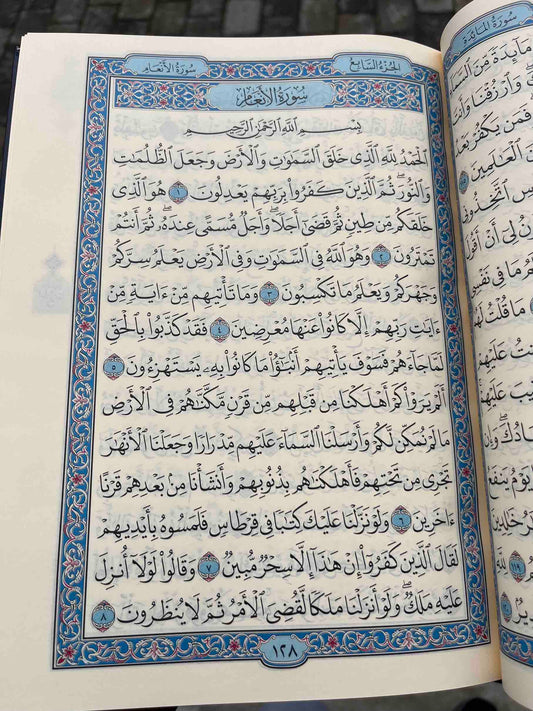 الجزء السابع
سورة الأنعام
سُورَةُ الأَنْعَامِ
بِسْمِ اللَّهِ الرَّحْمَٰنِ الرَّحِيمِ
ٱلْحَمْدُ لِلَّهِ ٱلَّذِى خَلَقَ ٱلسَّمَٰوَٰتِ وَٱلْأَرْضَ وَجَعَلَ ٱلظُّلُمَٰتِ
وَٱلنُّورَ ۖ ثُمَّ ٱلَّذِينَ كَفَرُوا۟ بِرَبِّهِمْ يَعْدِلُونَ ١ هُوَ ٱلَّذِى
خَلَقَكُم مِّن طِينٍ ثُمَّ قَضَىٰٓ أَجَلًا ۖ وَأَجَلٌ مُّسَمًّى عِندَهُۥ ۖ ثُمَّ أَنتُمْ
تَمْتَرُونَ ٢ وَهُوَ ٱللَّهُ فِى ٱلسَّمَٰوَٰتِ وَفِى ٱلْأَرْضِ ۖ يَعْلَمُ سِرَّكُمْ
وَجَهْرَكُمْ وَيَعْلَمُ مَا تَكْسِبُونَ ٣ وَمَا تَأْتِيهِم مِّنْ ءَايَةٍ مِّنْ
ءَايَٰتِ رَبِّهِمْ إِلَّا كَانُوا۟ عَنْهَا مُعْرِضِينَ ٤ فَقَدْ كَذَّبُوا۟ بِٱلْحَقِّ
لَمَّا جَآءَهُمْ ۖ فَسَوْفَ يَأْتِيهِمْ أَنۢبَٰٓؤُا۟ مَا كَانُوا۟ بِهِۦ يَسْتَهْزِءُونَ ٥
أَلَمْ يَرَوْا۟ كَمْ أَهْلَكْنَا مِن قَبْلِهِم مِّن قَرْنٍ مَّكَّنَّٰهُمْ فِى ٱلْأَرْضِ
مَا لَمْ نُمَكِّن لَّكُمْ وَأَرْسَلْنَا ٱلسَّمَآءَ عَلَيْهِم مِّدْرَارًا وَجَعَلْنَا ٱلْأَنْهَٰرَ
تَجْرِى مِن تَحْتِهِمْ فَأَهْلَكْنَٰهُم بِذُنُوبِهِمْ وَأَنشَأْنَا مِنۢ بَعْدِهِمْ قَرْنًا
ءَاخَرِينَ ٦ وَلَوْ نَزَّلْنَا عَلَيْكَ كِتَٰبًا فِى قِرْطَاسٍ فَلَمَسُوهُ بِأَيْدِيهِمْ
لَقَالَ ٱلَّذِينَ كَفَرُوٓا۟ إِنْ هَٰذَآ إِلَّا سِحْرٌ مُّبِينٌ ٧ وَقَالُوا۟ لَوْلَآ أُنزِلَ
عَلَيْهِ مَلَكٌ ۖ وَلَوْ أَنزَلْنَا مَلَكًا لَّقُضِىَ ٱلْأَمْرُ ثُمَّ لَا يُنظَرُونَ ٨
١٢٨
سورة المائدة